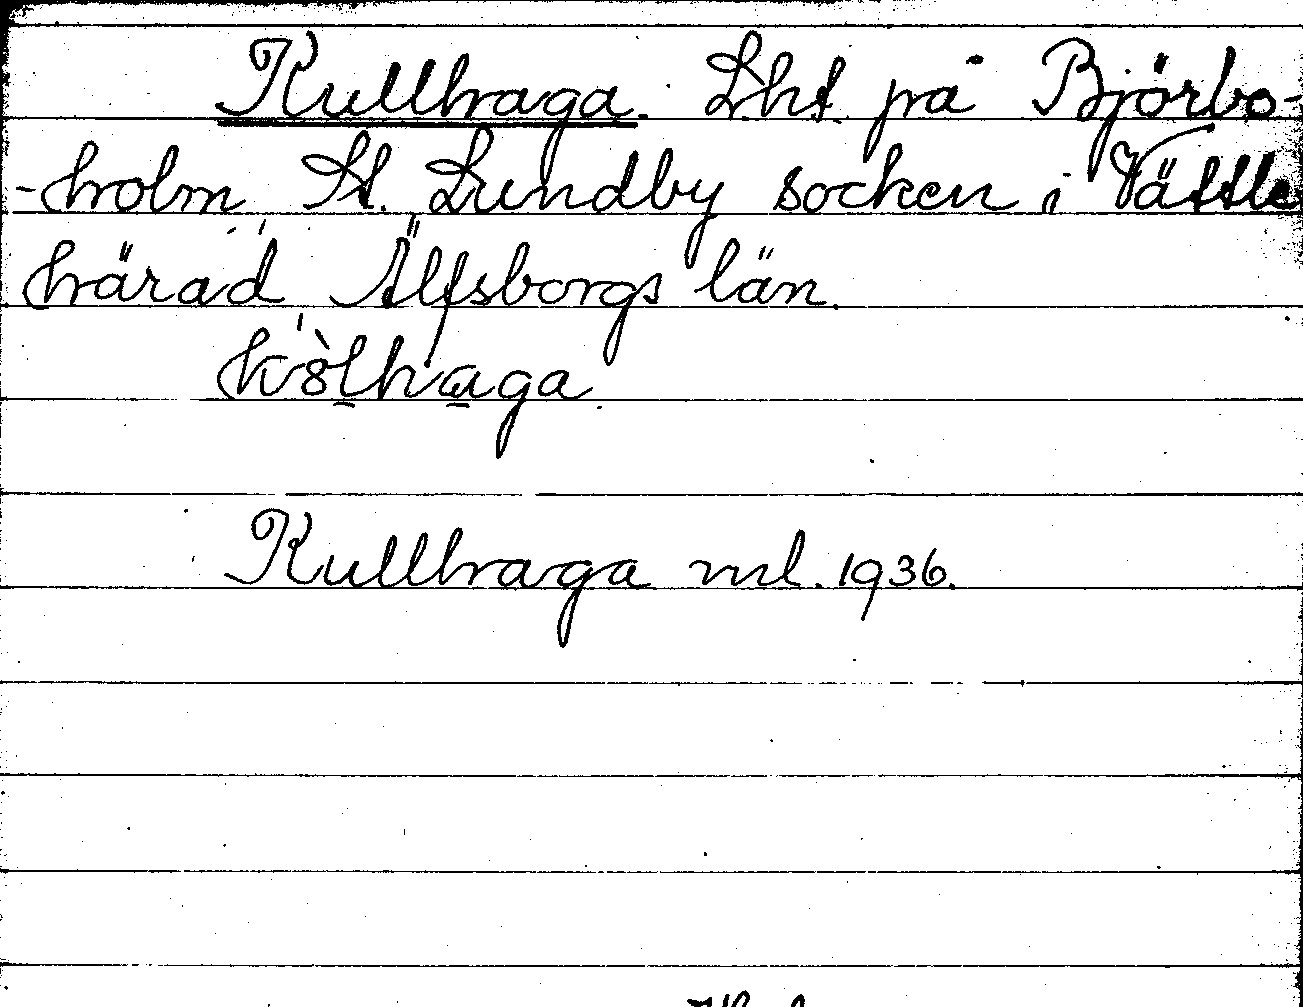 Kullhaga. Lht. på Björbo-
-holm St. Lundby socken i Vättle
härad Älfsborgs län.
kòlhaga.
Kullhaga ml. 1936.